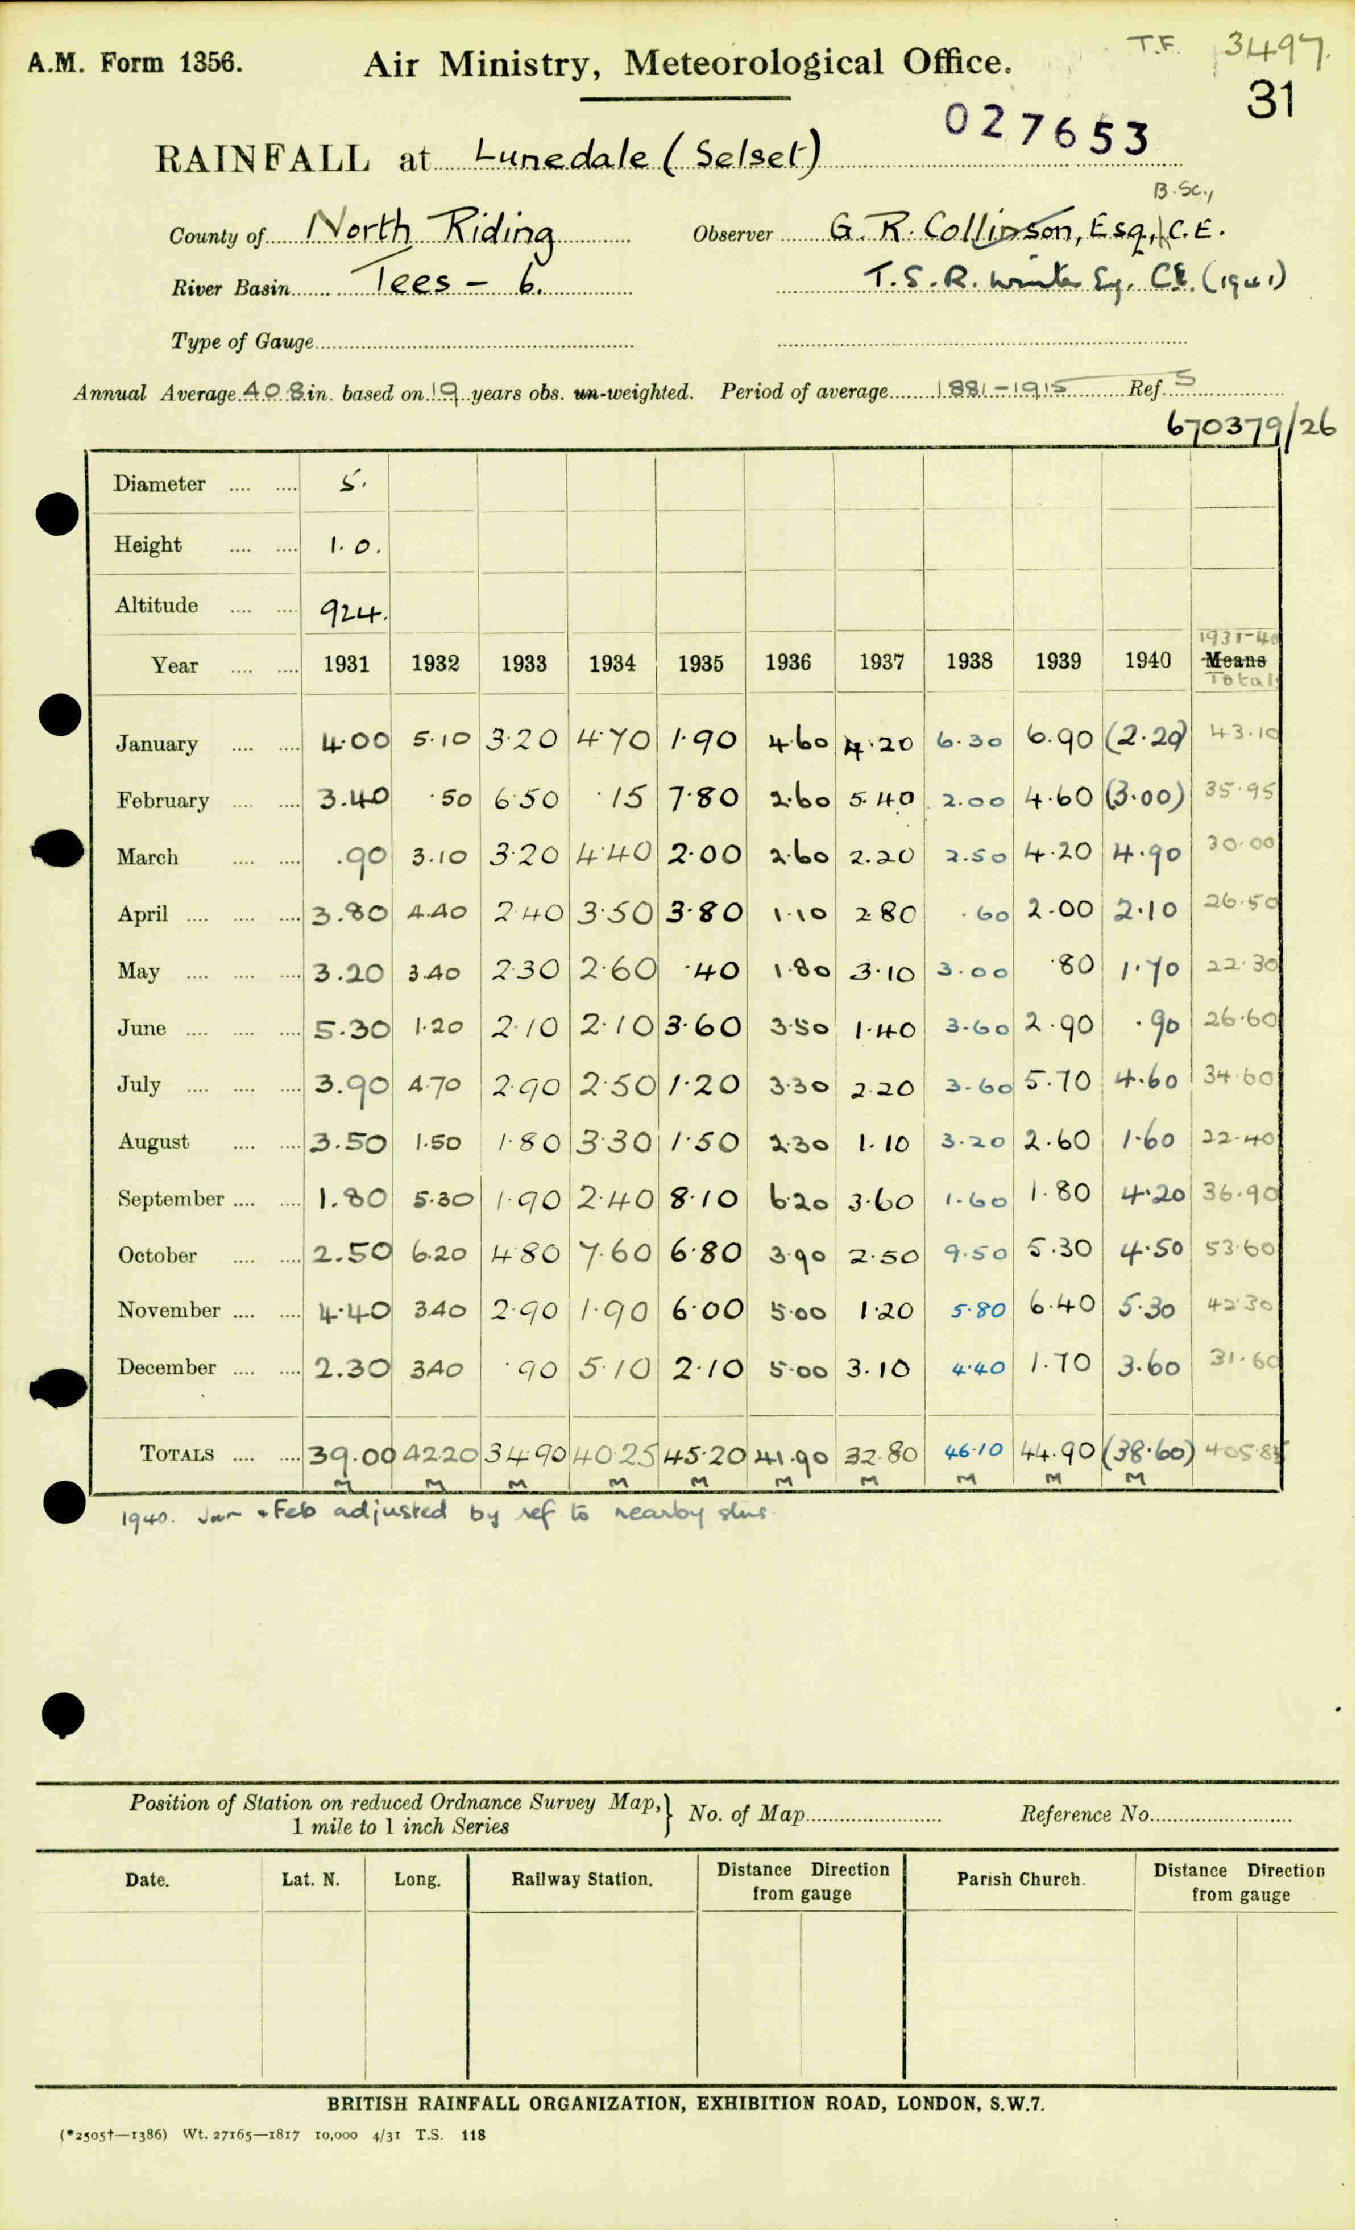 T.F. 3497.
A.M. Form 1356. Air Ministry, Meteorological Office.
31
027653
RAINFALL at Lunedale (Selset)
B.Sc.,
County of North Riding Observer G. R. Collinson, Esq., C.E.
River Basin Tees - 6. T.S.R. Winter Esq. C.E. (1941)
Type of Gauge
Annual Average 40.8 in. based on 19 years obs. un-weighted. Period of average 1881-1915 Ref. S
670379/26
Diameter 5.
Height 1.0.
Altitude 924.
1931-40
Year 1931 1932 1933 1934 1935 1936 1937 1938 1939 1940 Means
Total
January 4.00 5.10 3.20 4.70 1.90 4.60 4.20 6.30 6.90 (2.20) 43.10
February 3.40 .50 6.50 .15 7.80 2.60 5.40 2.00 4.60 (3.00) 35.95
March .90 3.10 3.20 4.40 2.00 2.60 2.20 2.50 4.20 4.90 30.00
April 3.80 4.40 2.40 3.50 3.80 1.10 2.80 .60 2.00 2.10 26.50
May 3.20 3.40 2.30 2.60 .40 1.80 3.10 3.00 .80 1.70 22.30
June 5.30 1.20 2.10 2.10 3.60 3.50 1.40 3.60 2.90 .90 26.60
July 3.90 4.70 2.90 2.50 1.20 3.30 2.20 3.60 5.70 4.60 34.60
August 3.50 1.50 1.80 3.30 1.50 2.30 1.10 3.20 2.60 1.60 22.40
September 1.80 5.30 1.90 2.40 8.10 6.20 3.60 1.60 1.80 4.20 36.90
October 2.50 6.20 4.80 7.60 6.80 3.90 2.50 9.50 5.30 4.50 53.60
November 4.40 3.40 2.90 1.90 6.00 5.00 1.20 5.80 6.40 5.30 42.30
December 2.30 3.40 .90 5.10 2.10 5.00 3.10 4.40 1.70 3.60 31.60
TOTALS 39.00 42.20 34.90 40.25 45.20 41.90 32.80 46.10 44.90 (38.60) 405.85
M M M M M M M M M M
1940. Jan & Feb adjusted by ref to nearby stns.
Position of Station on reduced Ordnance Survey Map, } No. of Map Reference No.
1 mile to 1 inch Series
Date. Lat. N. Long. Railway Station. Distance Direction from gauge Parish Church. Distance Direction from gauge
BRITISH RAINFALL ORGANIZATION, EXHIBITION ROAD, LONDON, S.W.7.
(*2505†—1386) Wt. 27165—1817 10,000 4/31 T.S. 118